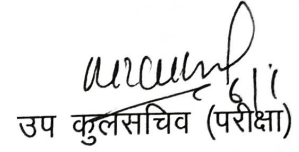 6/1
उप कुलसचिव (परीक्षा)